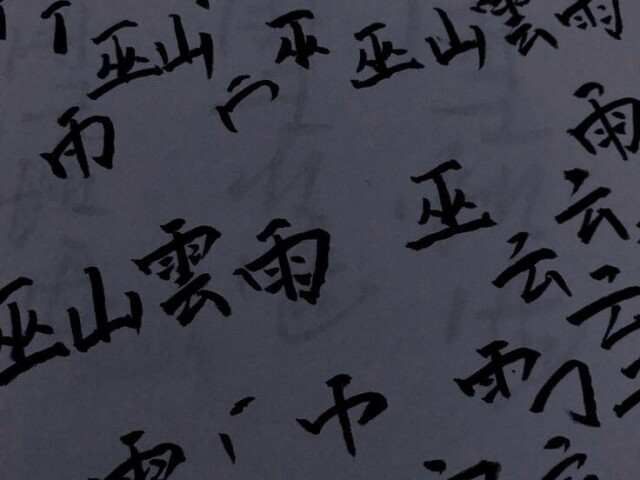 巫山 巫 巫山雲雨
雨 雨
巫 云
巫山雲雨 云 云
巾 雨
雲